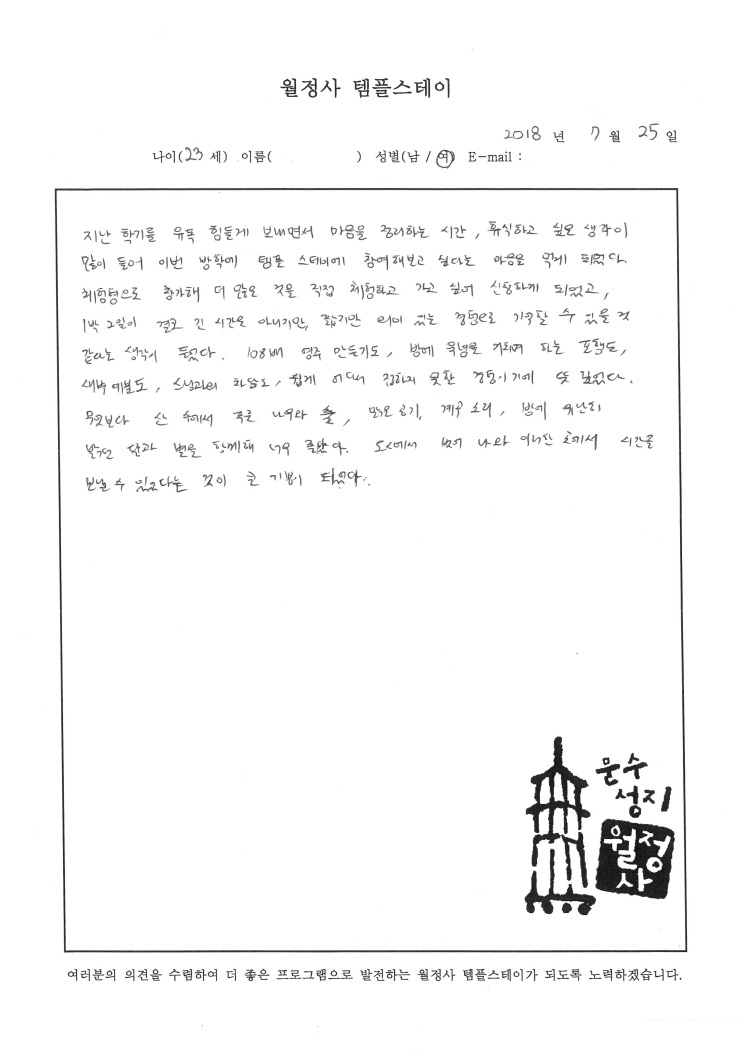 월정사 템플스테이
2018 년 7 월 25 일
나이(23 세) 이름( ) 성별(남 / 여) E-mail :
지난 학기를 유독 힘들게 보내면서 마음을 정리하는 시간, 휴식하고 싶은 생각이
많이 들어 이번 방학에 템플 스테이에 참여해보고 싶다는 마음을 먹게 되었다.
체험형으로 참가해 더 많은 것을 직접 체험하고 가고 싶어 신청하게 되었고,
1박 2일이 결코 긴 시간은 아니지만, 짧지만 의미 있는 경험으로 기억할 수 있을 것
같다는 생각이 들었다. 108배 염주 만들기도, 밤에 하는 포행도,
새벽 예불도, 스님과의 차담도, 쉽게 어디서 접하지 못한 경험이기에 뜻 깊었다.
무엇보다 산 속에서 나무와 , 맑은 공기, 계곡 소리, 밤에 유난히
밝은 달과 별을 함께해 너무 좋았다. 도시에서 벗어나 시간을
보낼 수 있었다는 것이 큰 기쁨이 되었다.
문수
성지
월정
사
여러분의 의견을 수렴하여 더 좋은 프로그램으로 발전하는 월정사 템플스테이가 되도록 노력하겠습니다.